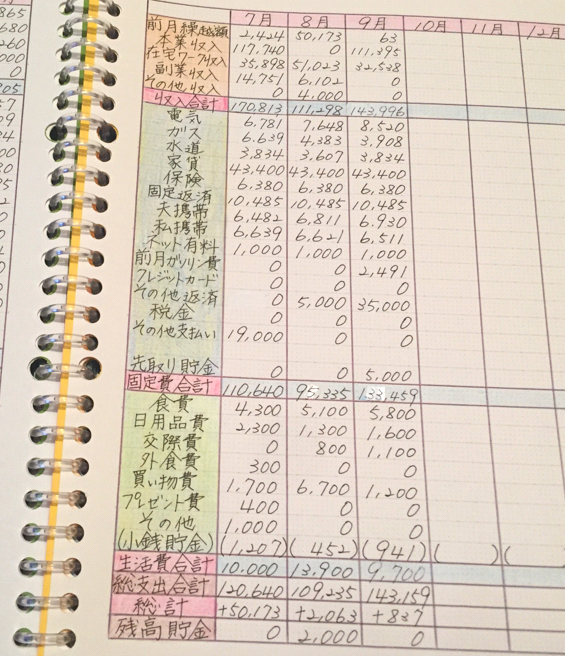 7月 8月 9月 10月 11月 12月
前月繰越額 2,424 50,173 63
本業収入 117,740 0 111,395
在宅ワーク収入 35,898 51,023 32,538
副業収入 14,751 6,102 0
その他収入 0 4,000 0
収入合計 170,813 111,298 143,996
電気 6,781 7,648 8,520
ガス 6,639 4,383 3,908
水道 3,834 3,607 3,834
家賃 43,400 43,400 43,400
保険 6,380 6,380 6,380
固定返済 10,485 10,485 10,485
夫携帯 6,482 6,811 6,930
私携帯 6,639 6,621 6,511
ネット有料 1,000 1,000 1,000
前月ガソリン費 0 0 2,491
クレジットカード 0 0 0
その他返済 0 5,000 35,000
税金 0 0 0
その他支払い 19,000 0 0
先取り貯金 0 0 5,000
固定費合計 110,640 95,335 133,459
食費 4,300 5,100 5,800
日用品費 2,300 1,300 1,600
交際費 0 800 1,100
外食費 300 0 0
買い物費 1,700 6,700 1,200
プレゼント費 400 0 0
その他 1,000 0 0
(小銭貯金) (1,207) (452) (941) ( ) (
生活費合計 10,000 13,900 9,700
総支出合計 120,640 109,235 143,159
総計 +50,173 +2,063 +837
残高貯金 0 2,000 0